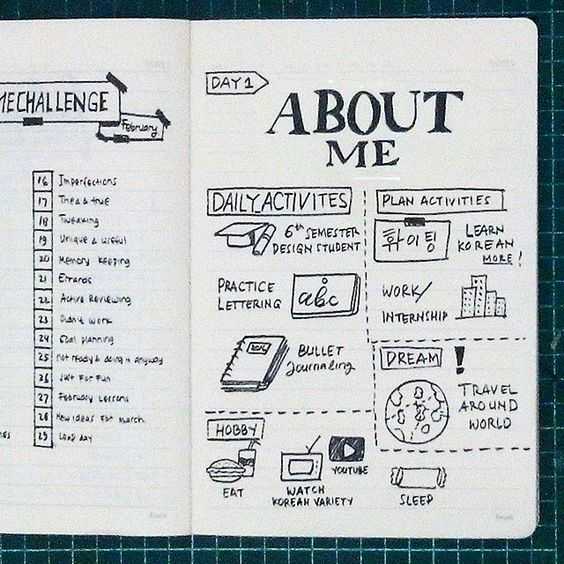 MECHALLENGE
February
16 Imperfections
17 Tried & true
18 Tweaking
19 Unique & useful
20 Memory keeping
21 Errands
22 Active Reviewing
23 Didn't work
24 Goal planning
25 not ready & doing it anyway
26 Just For Fun
27 February Lessons
28 New ideas For March
29 Long day
DAY 1
ABOUT
ME
DAILY ACTIVITES
6th SEMESTER
DESIGN STUDENT
PRACTICE
LETTERING
abc
BULLET
Journaling
PLAN ACTIVITIES
화이팅
LEARN
KOREAN
MORE!
WORK/
INTERNSHIP
DREAM !
TRAVEL
AROUND
WORLD
HOBBY
EAT
WATCH
KOREAN VARIETY
YOUTUBE
SLEEP